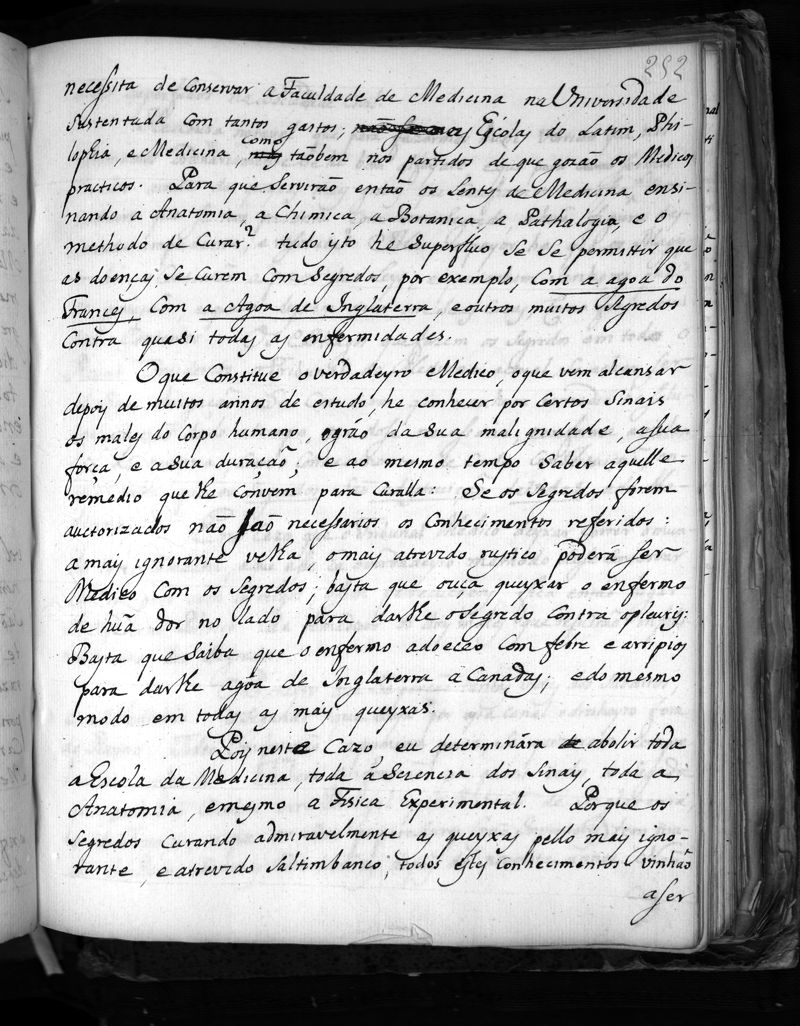 252
necessita de Conservar a Faculdade de Medicina na Universidade
Sustentada Com tantos gastos; Escolas do Latim, Phi-
lophia, e Medicina, como taõbem nos partidos de que gozaõ os Medicos
practicos. Para que Serviraõ entaõ os Lentes de Medicina ensi-
nando a Anatomia, a Chimica, a Botanica, a Pathalogia, e o
methodo de Curar? tudo isto he Superfluo Se Se permittir que
as doenças Se Curem Com Segredos, por exemplo, Com a agoa do
Frances, Com a Agoa de Inglaterra, e outros muitos Segredos
Contra quasi todas as enfermidades.
O que Constitue o verdadeyro Medico, o que vem alcansar
depois de muitos annos de estudo, he conhecer por Certos Sinais
os males do Corpo humano, o grão da Sua malignidade, a sua
força, e a Sua duraçaõ; e ao mesmo tempo Saber aquelle
remedio que lhe Convem para Curalla: Se os Segredos forem
auctorizados naõ saõ necessarios os Conhecimentos referidos:
a mais ignorante velha, o mais atrevido rustico poderá ser
Medico Com os Segredos; basta que ouça queyxar o enfermo
de huã dor no lado para darlhe o Segredo Contra o pleuris:
Basta que Saiba que o enfermo adoeceo Com febre e arripios
para darlhe agoa de Inglaterra a Canadas; e do mesmo
modo em todas as mais queyxas.
Pois neste Cazo, eu determinára abolir toda
a Escola da Medicina, toda a Sciencia dos Sinais, toda a
Anatomia, e mesmo a Fisica Experimental. Porque os
Segredos Curando admiravelmente as queyxas pello mais igno-
rante, e atrevido Saltimbanco, todos estes Conhecimentos vinhaõ
a ser